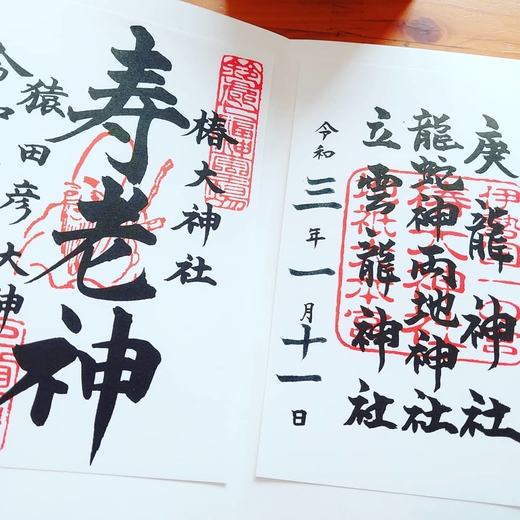 庚龍神社
龍蛇神両地神社
立雲龍神社
令和三年一月十一日
椿大神社
寿老神
猿田彦大神
令和